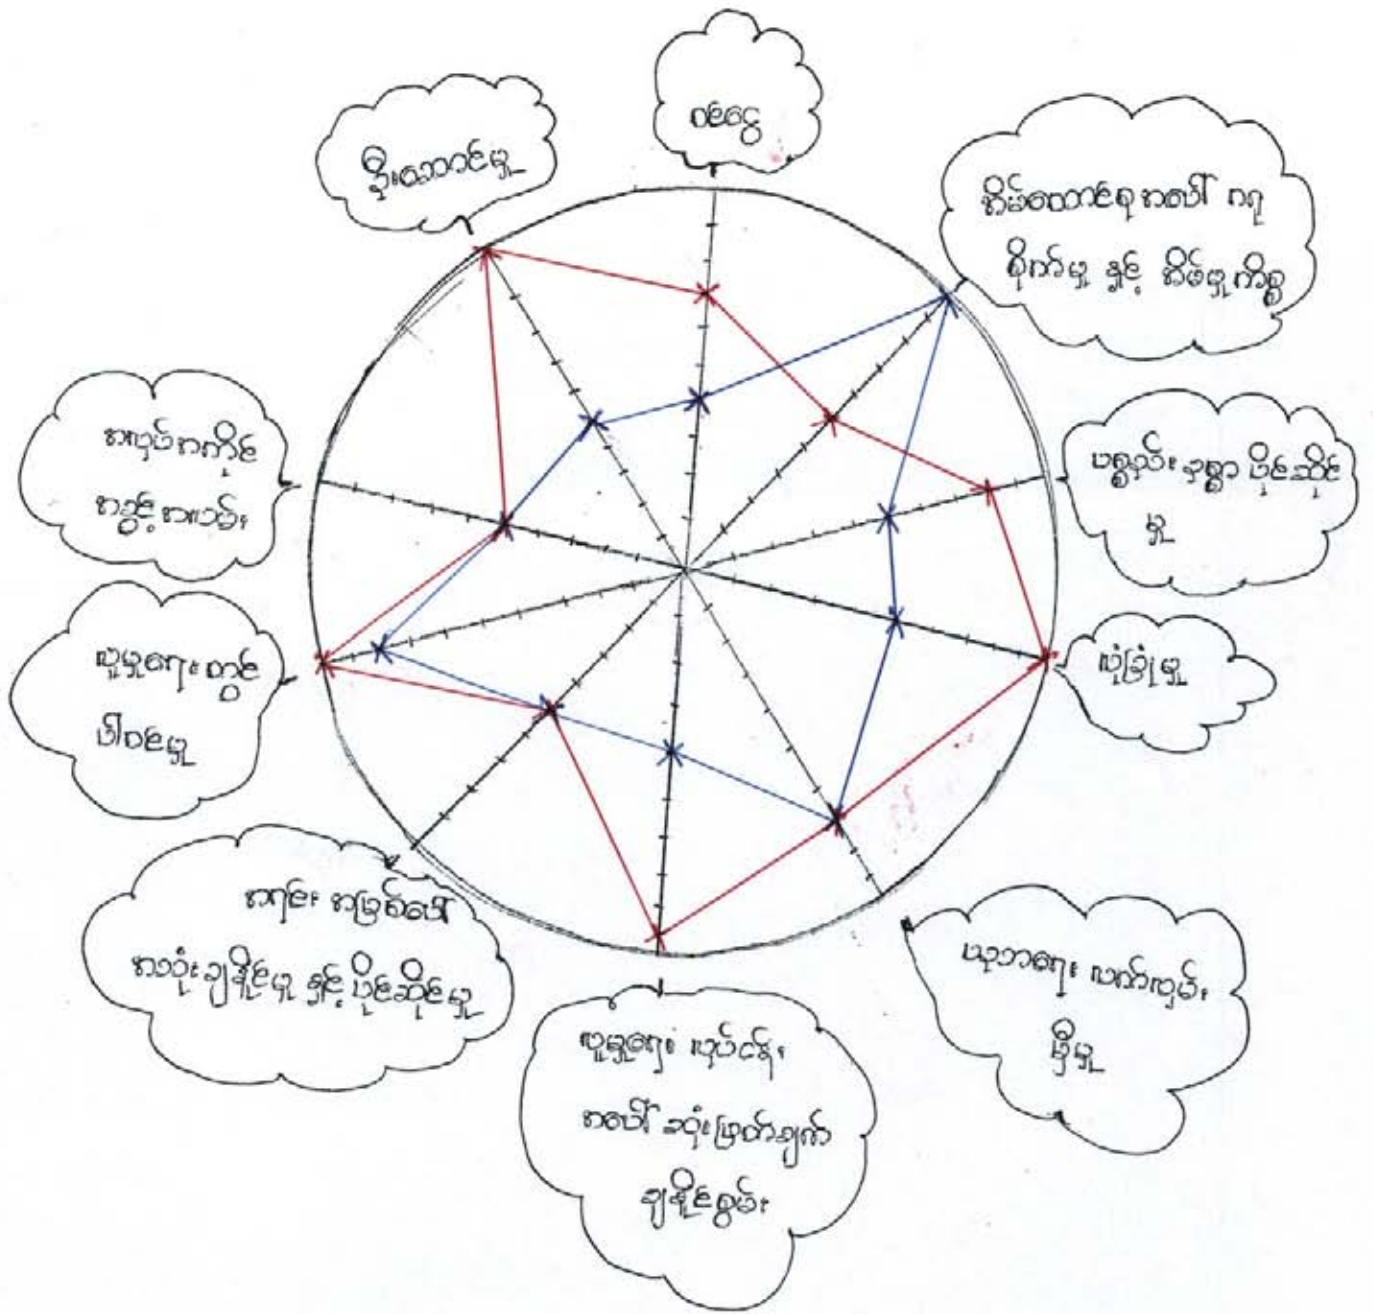 ဝင်ငွေ
အိမ်ထောင်စုအပေါ် ဂရု
စိုက်မှု နှင့် အိမ်မှုကိစ္စ
ပစ္စည်းဥစ္စာ ပိုင်ဆိုင်
မှု
လုံခြုံမှု
ယုဘရေး လက်လှမ်း
မှီမှု
လူမှုရေး လုပ်ငန်း
အပေါ် ဆုံးဖြတ်ချက်
ချနိုင်စွမ်း
အရင်းအမြစ်ပေါ်
အသုံးချနိုင်မှု နှင့် ပိုင်ဆိုင်မှု
လူမှုရေးတွင်
ပါဝင်မှု
အလုပ်အကိုင်
အခွင့်အလမ်း
ဦးဆောင်မှု